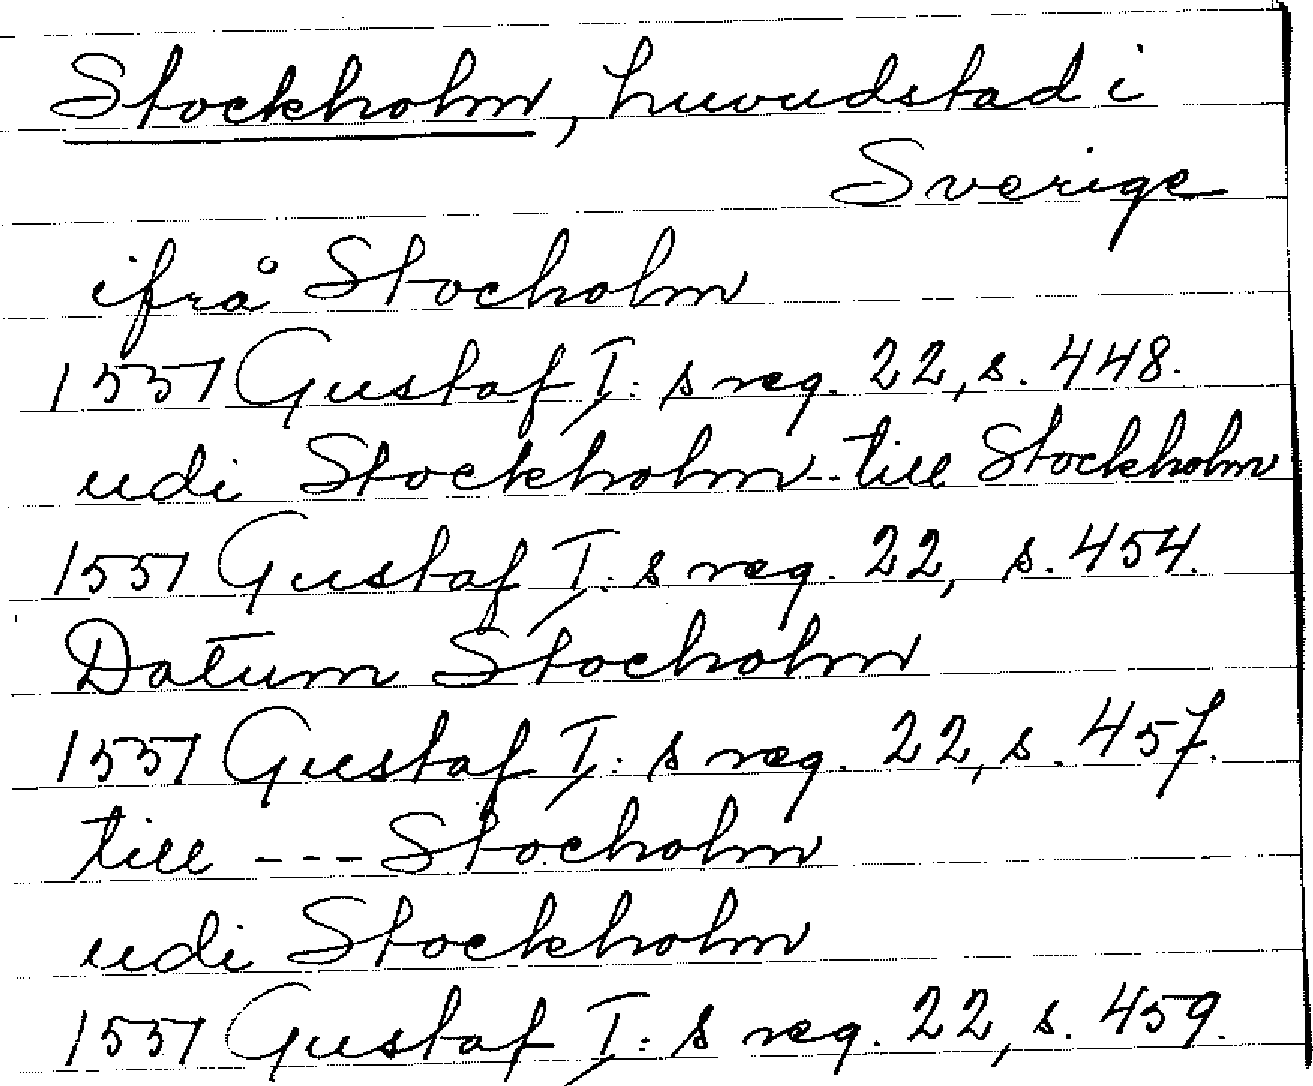 Stockholm, huvudstad i
Sverige
ifrå Stocholm
1551 Gustaf I: s reg. 22, s. 448.
udi Stockholm -- till Stockholm
1551 Gustaf I: s reg. 22, s. 454.
Datum Stocholm
1551 Gustaf I: s reg. 22, s. 457.
till --- Stocholm
udi Stockholm
1551 Gustaf I: s reg. 22, s. 459.